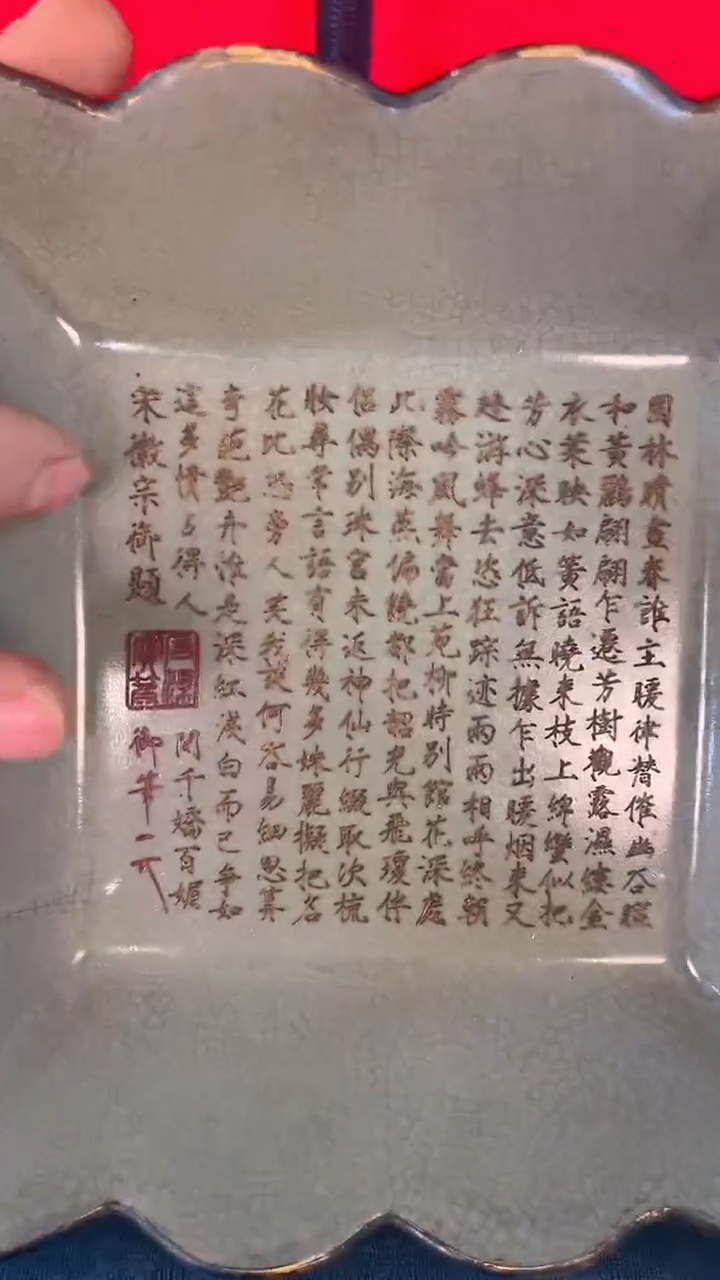 園林晴晝春誰主暖律潛催幽谷暄
和黃鸝翩翩乍遷芳樹觀露濕縷金
衣葉映如簧語曉來枝上綿蠻似把
芳心深意低訴無據乍出暖烟來又
趁游蜂去恣狂踪迹兩兩相呼終朝
霧吟風舞當上苑柳時別館花深處
此際海燕偏饒都把韶光與飛瓊伴
侶偶別珠宮未返神仙行綴取次梳
妝尋常言語有得幾多姝麗擬把名
花比恐旁人笑我談何容易細思算
奇葩艷卉惟是深紅淺白而已爭如
這多情占得人間千嬌百媚
宋徽宗御題
御筆